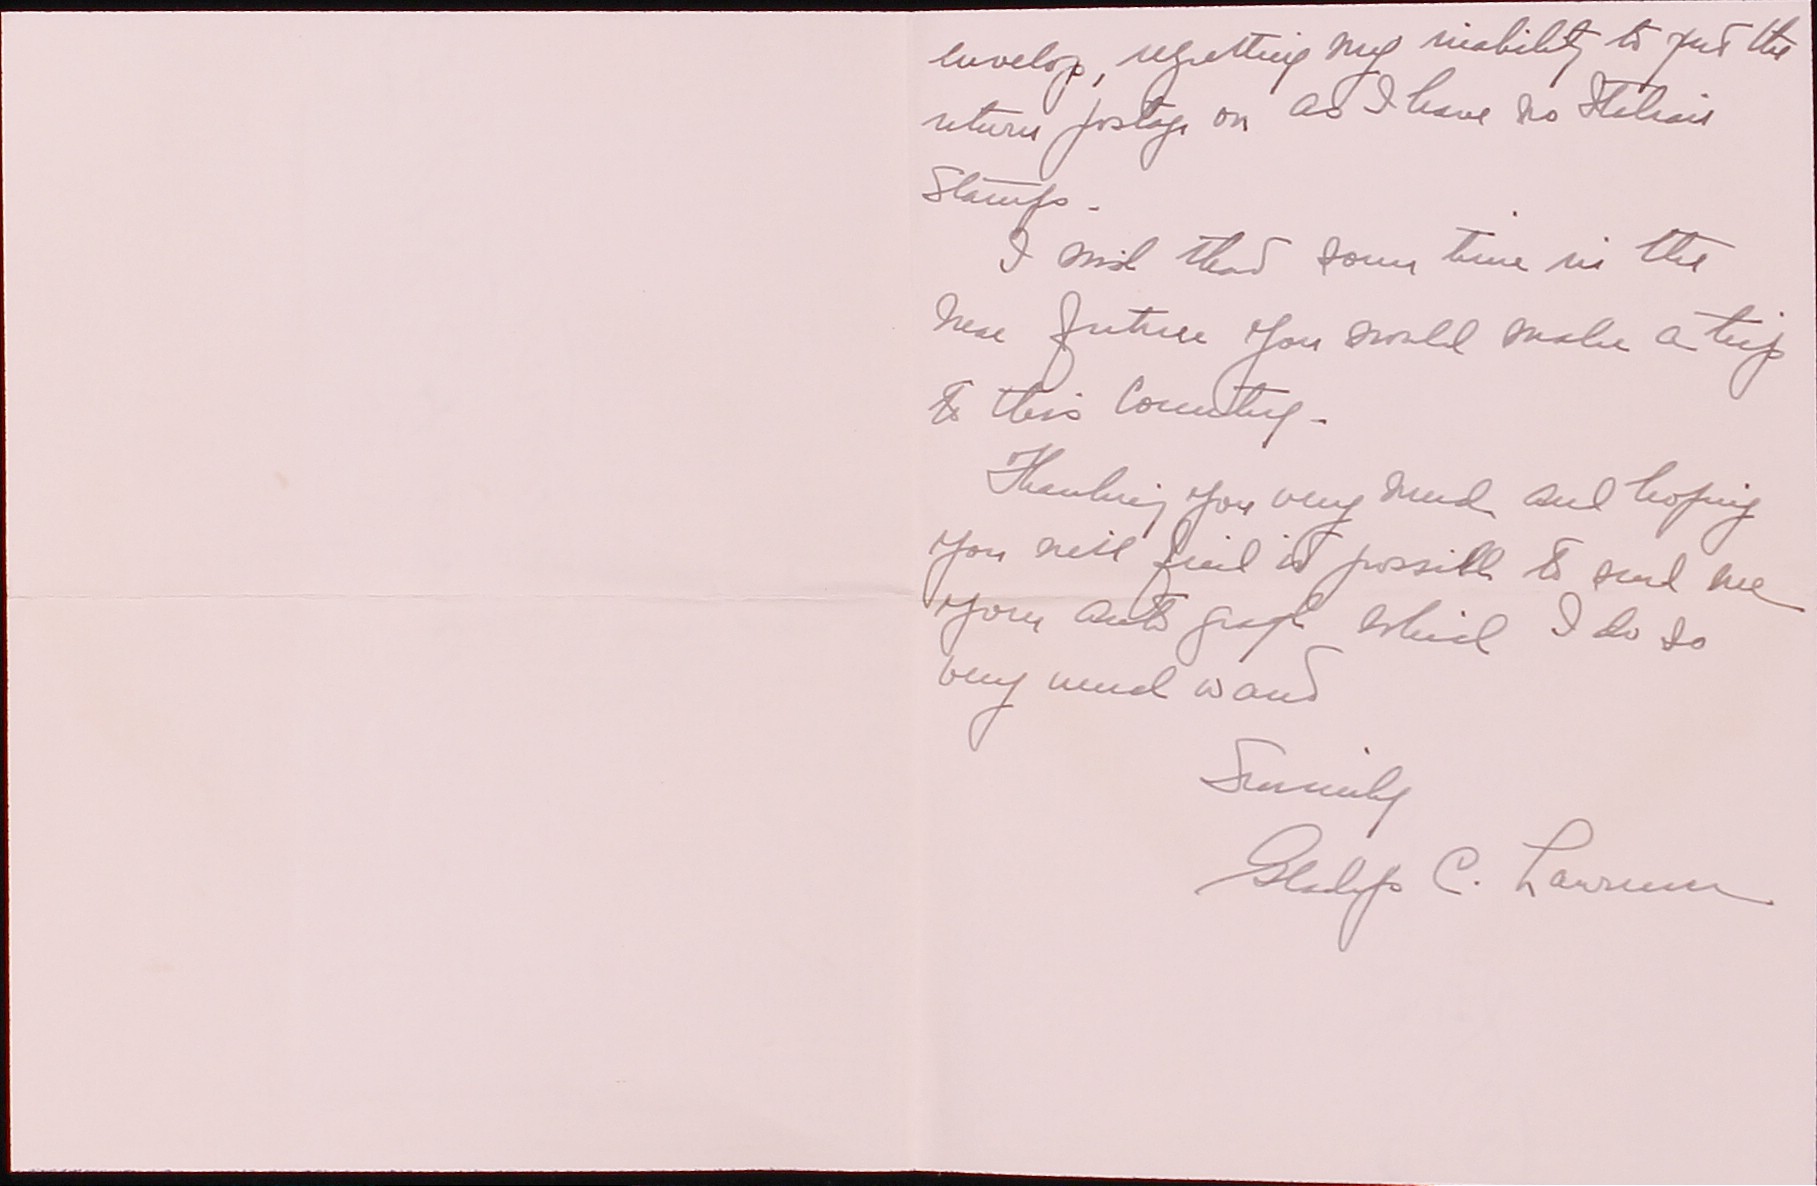 envelop, regretting my inability to put the
return postage on as I have no Italian
Stamps -
I wish that some time in the
near future you would make a trip
to this Country -
Thanking you very much and hoping
you will find it possible to send me
your autograph which I do so
very much want
Sincerely
Gladys C. Lawrence